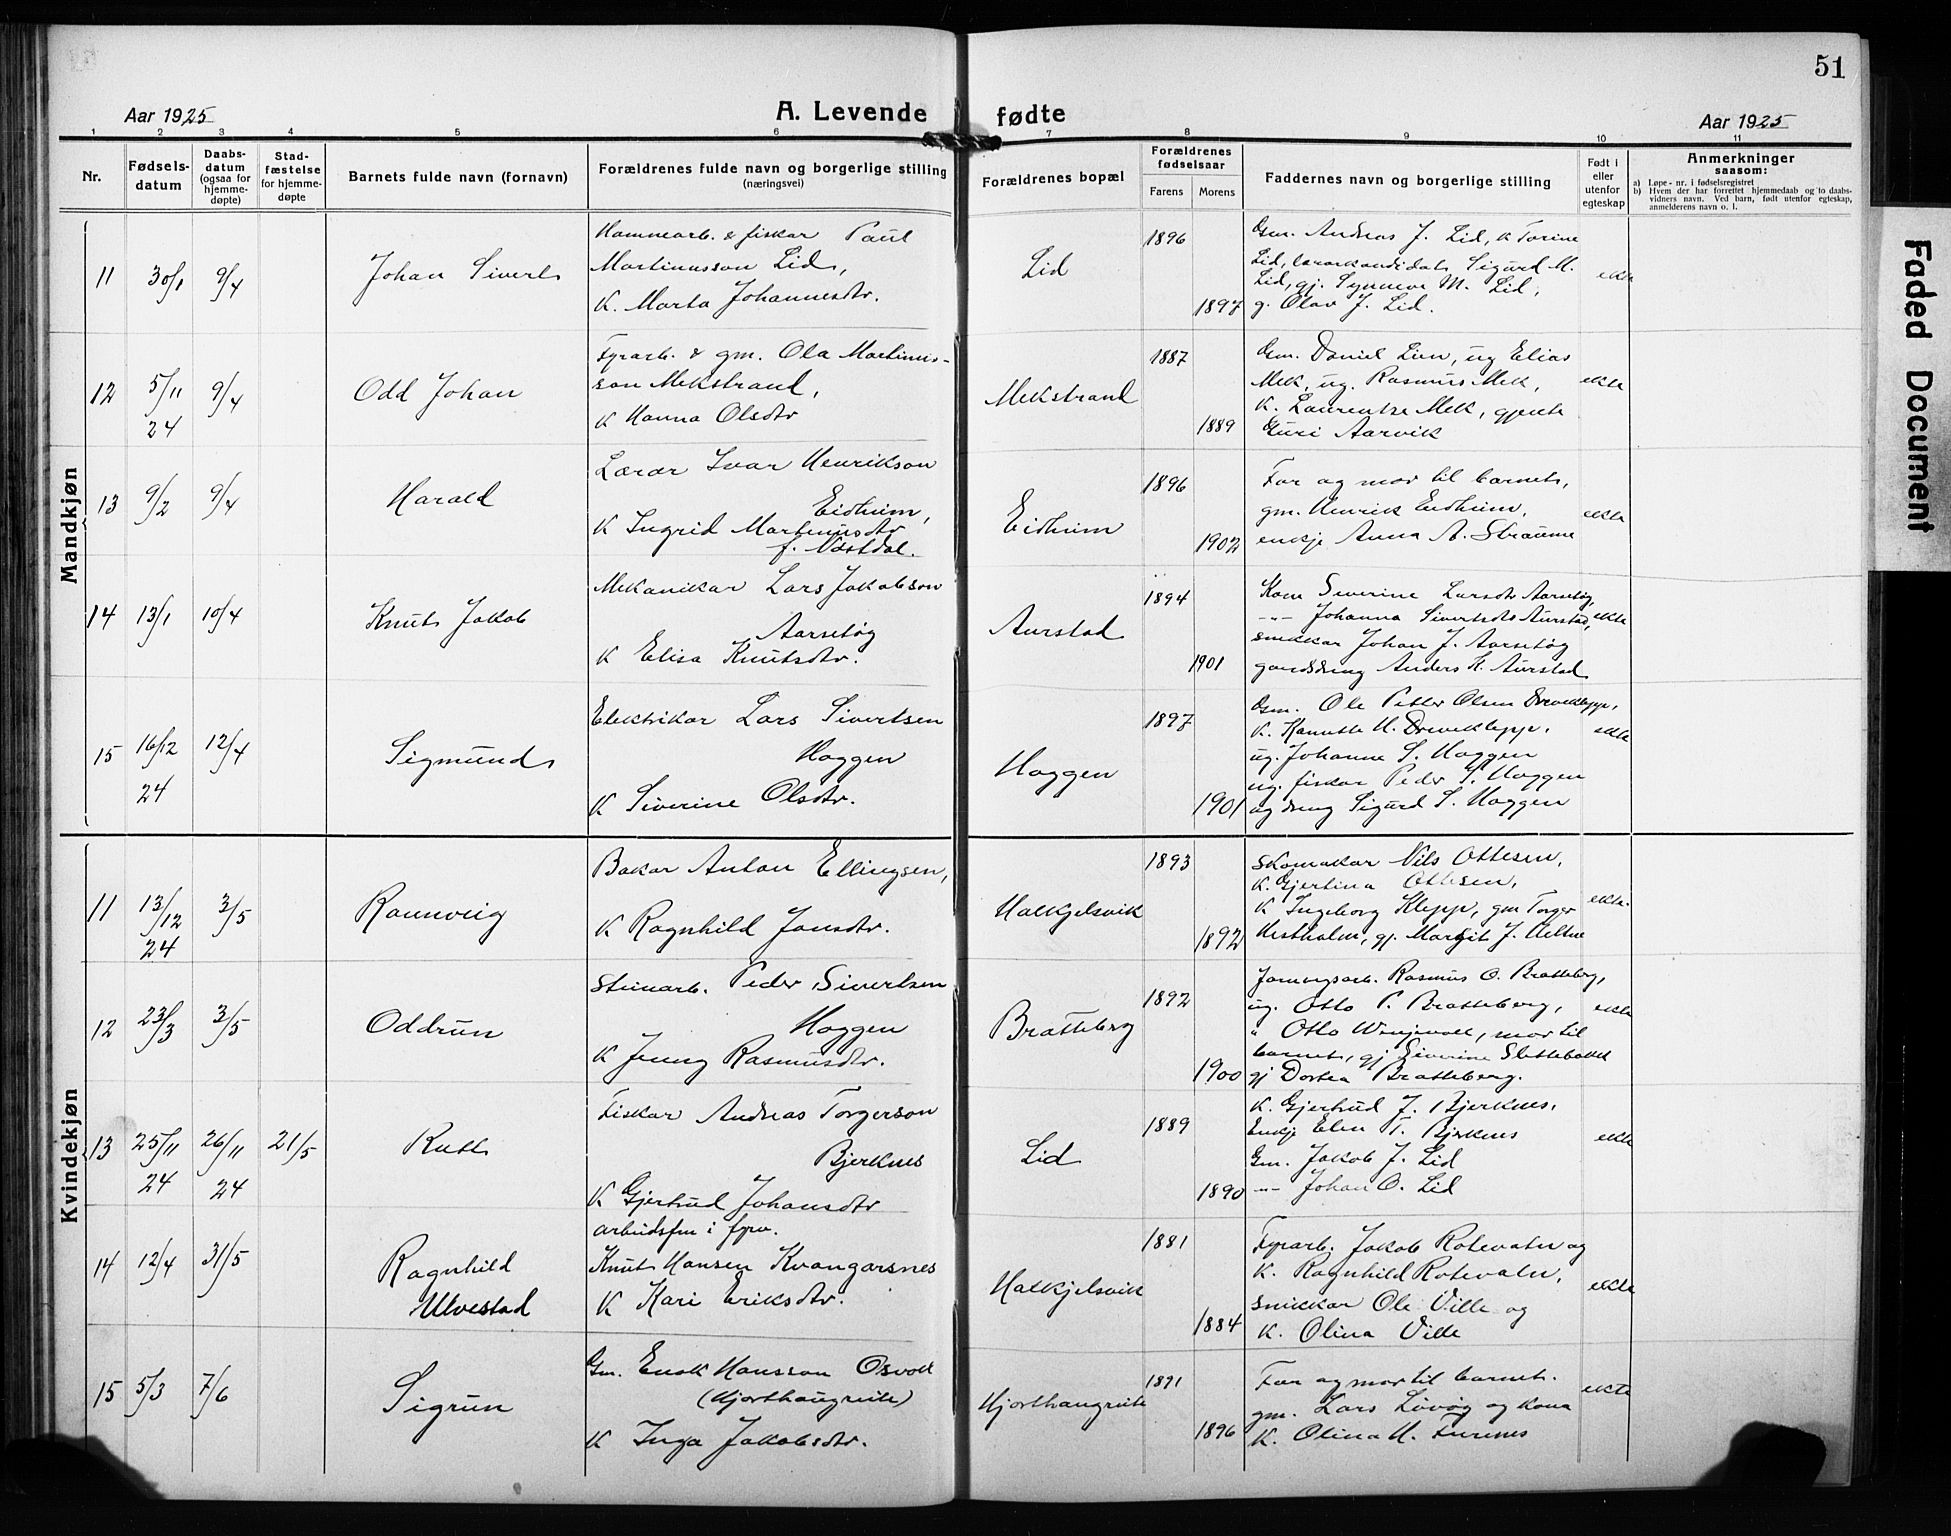 51
Aar 1925
A. Levende fødte
Aar 1925
1 2 3 4 5 6 7 8 9 10 11
Nr.
Fødsels-
datum
Daabs-
datum
(ogsaa for
hjemme-
døpte)
Stad-
fæstelse
for hjemme-
døpte
Barnets fulde navn (fornavn)
Forældrenes fulde navn og borgerlige stilling
(næringsvei)
Forældrenes bopæl
Forældrenes
fødselsaar
Farens Morens
Faddernes navn og borgerlige stilling
Født i
eller
utenfor
egteskap
Anmerkninger
saasom:
a) Løpe-nr. i fødselsregistret
b) Hvem der har forrettet hjemmedaab og to daabs-
vidners navn. Ved barn, født utenfor egteskap,
anmelderens navn o. l.
Mandkjøn
11 30/1 9/4 Johan Sivert
Hamnearb. & fiskar Paul
Martinusson Lid,
K. Marta Johannesdtr.
Lid 1896 1897
Gm. Andreas J. Lid, K Torine
Lid, lærarkandidat Sigurd M.
Lid, gj. Synneve M. Lid,
g. Olav J. Lid.
ekte
12 5/11 24 9/4 Odd Johan
Fyrarb. & gm. Ola Martinus-
son Mekstrand,
K Hanna Olsdtr
Mekstrand 1887 1889
Gm. Daniel Lien, ug Elias
Mek, ug. Rasmus Mek,
K. Laurentse Mek, gjente
Guri Aarvik
ekte
13 9/2 9/4 Harald
Lærar Ivar Henrikson
Eidheim,
K Ingrid Martinusdtr
f. Nastdal.
Eidheim 1896 1902
Far og mor til barnet,
gm. Henrik Eidheim,
enkje Anna A. Straume
ekte
14 13/1 10/4 Knut Jakob
Mekanikar Lars Jakobson
Aarsetøg
K Elisa Knutsdtr.
Aurstad 1894 1901
Kone Severine Larsdtr Aarsetøg,
-"- Johanna Sivertsdtr Aurstad,
snikkar Johan J. Aarsetøg
gardsdreng Anders K. Aurstad
ekte
15 16/12 24 12/4 Sigmund
Elektrikar Lars Sivertsen
Haggen
K Siverine Olsdtr.
Haggen 1897 1901
Gm. Ole Petter Olsen Dreveklepp,
K. Hanutte H. Dreveklepp,
ug. Johanne S. Haggen
ug. fiskar Peder S. Haggen
og dreng Sigurd S. Haggen
ekte
Kvindekjøn
11 13/12 24 3/5 Rannveig
Bakar Anton Ellingsen,
K Ragnhild Jonsdtr.
Halkjelsvik 1893 1892
Skomakar Nils Ottesen,
K. Gjertina Ottesen,
K Ingeborg Klepp, gm Torger
Hestholm, gj. Margit J. Heltne
ekte.
12 23/3 3/5 Oddrun
Steinarb. Peder Sivertsen
Haggen
K Jenny Rasmusdtr.
Bratteberg 1892 1900
Jarnvegsarb. Rasmus O. Bratteberg,
ug. Otto P. Bratteberg,
" Otto Winjevoll, mor til
barnet, gj Siverine Slettebakk
gj Dortea Bratteberg.
ekte
13 25/11 24 26/11 24 21/5 Rutt
Fiskar Andreas Torgerson
Bjerknes
K Gjertrud Johansdtr
Lid 1889 1890
K. Gjertrud J. Bjerknes,
Enkje Elen T. Bjerknes
Gm. Jakob J. Lid
-"- Johan O. Lid
ekte
14 12/4 31/5 Ragnhild
Ulvestad
arbeidsfm i fyrv.
Knut Hansen Kvangarsnes
K Kari Eriksdtr.
Halkjelsvik 1881 1884
Fyrarb. Jakob Rotevatn og
K. Ragnhild Rotevatn,
snikkar Ole Ville og
K. Olina Ville
ekte
15 5/3 7/6 Sigrun
Gm. Enok Hansson Osvoll
(Hjorthaugreite)
K Inga Jakobsdtr.
Hjorthaugreite 1891 1896
Far og mor til barnet.
gm. Lars Løvøg og kona
K. Olina H. Furenes
ekte
Faded Document